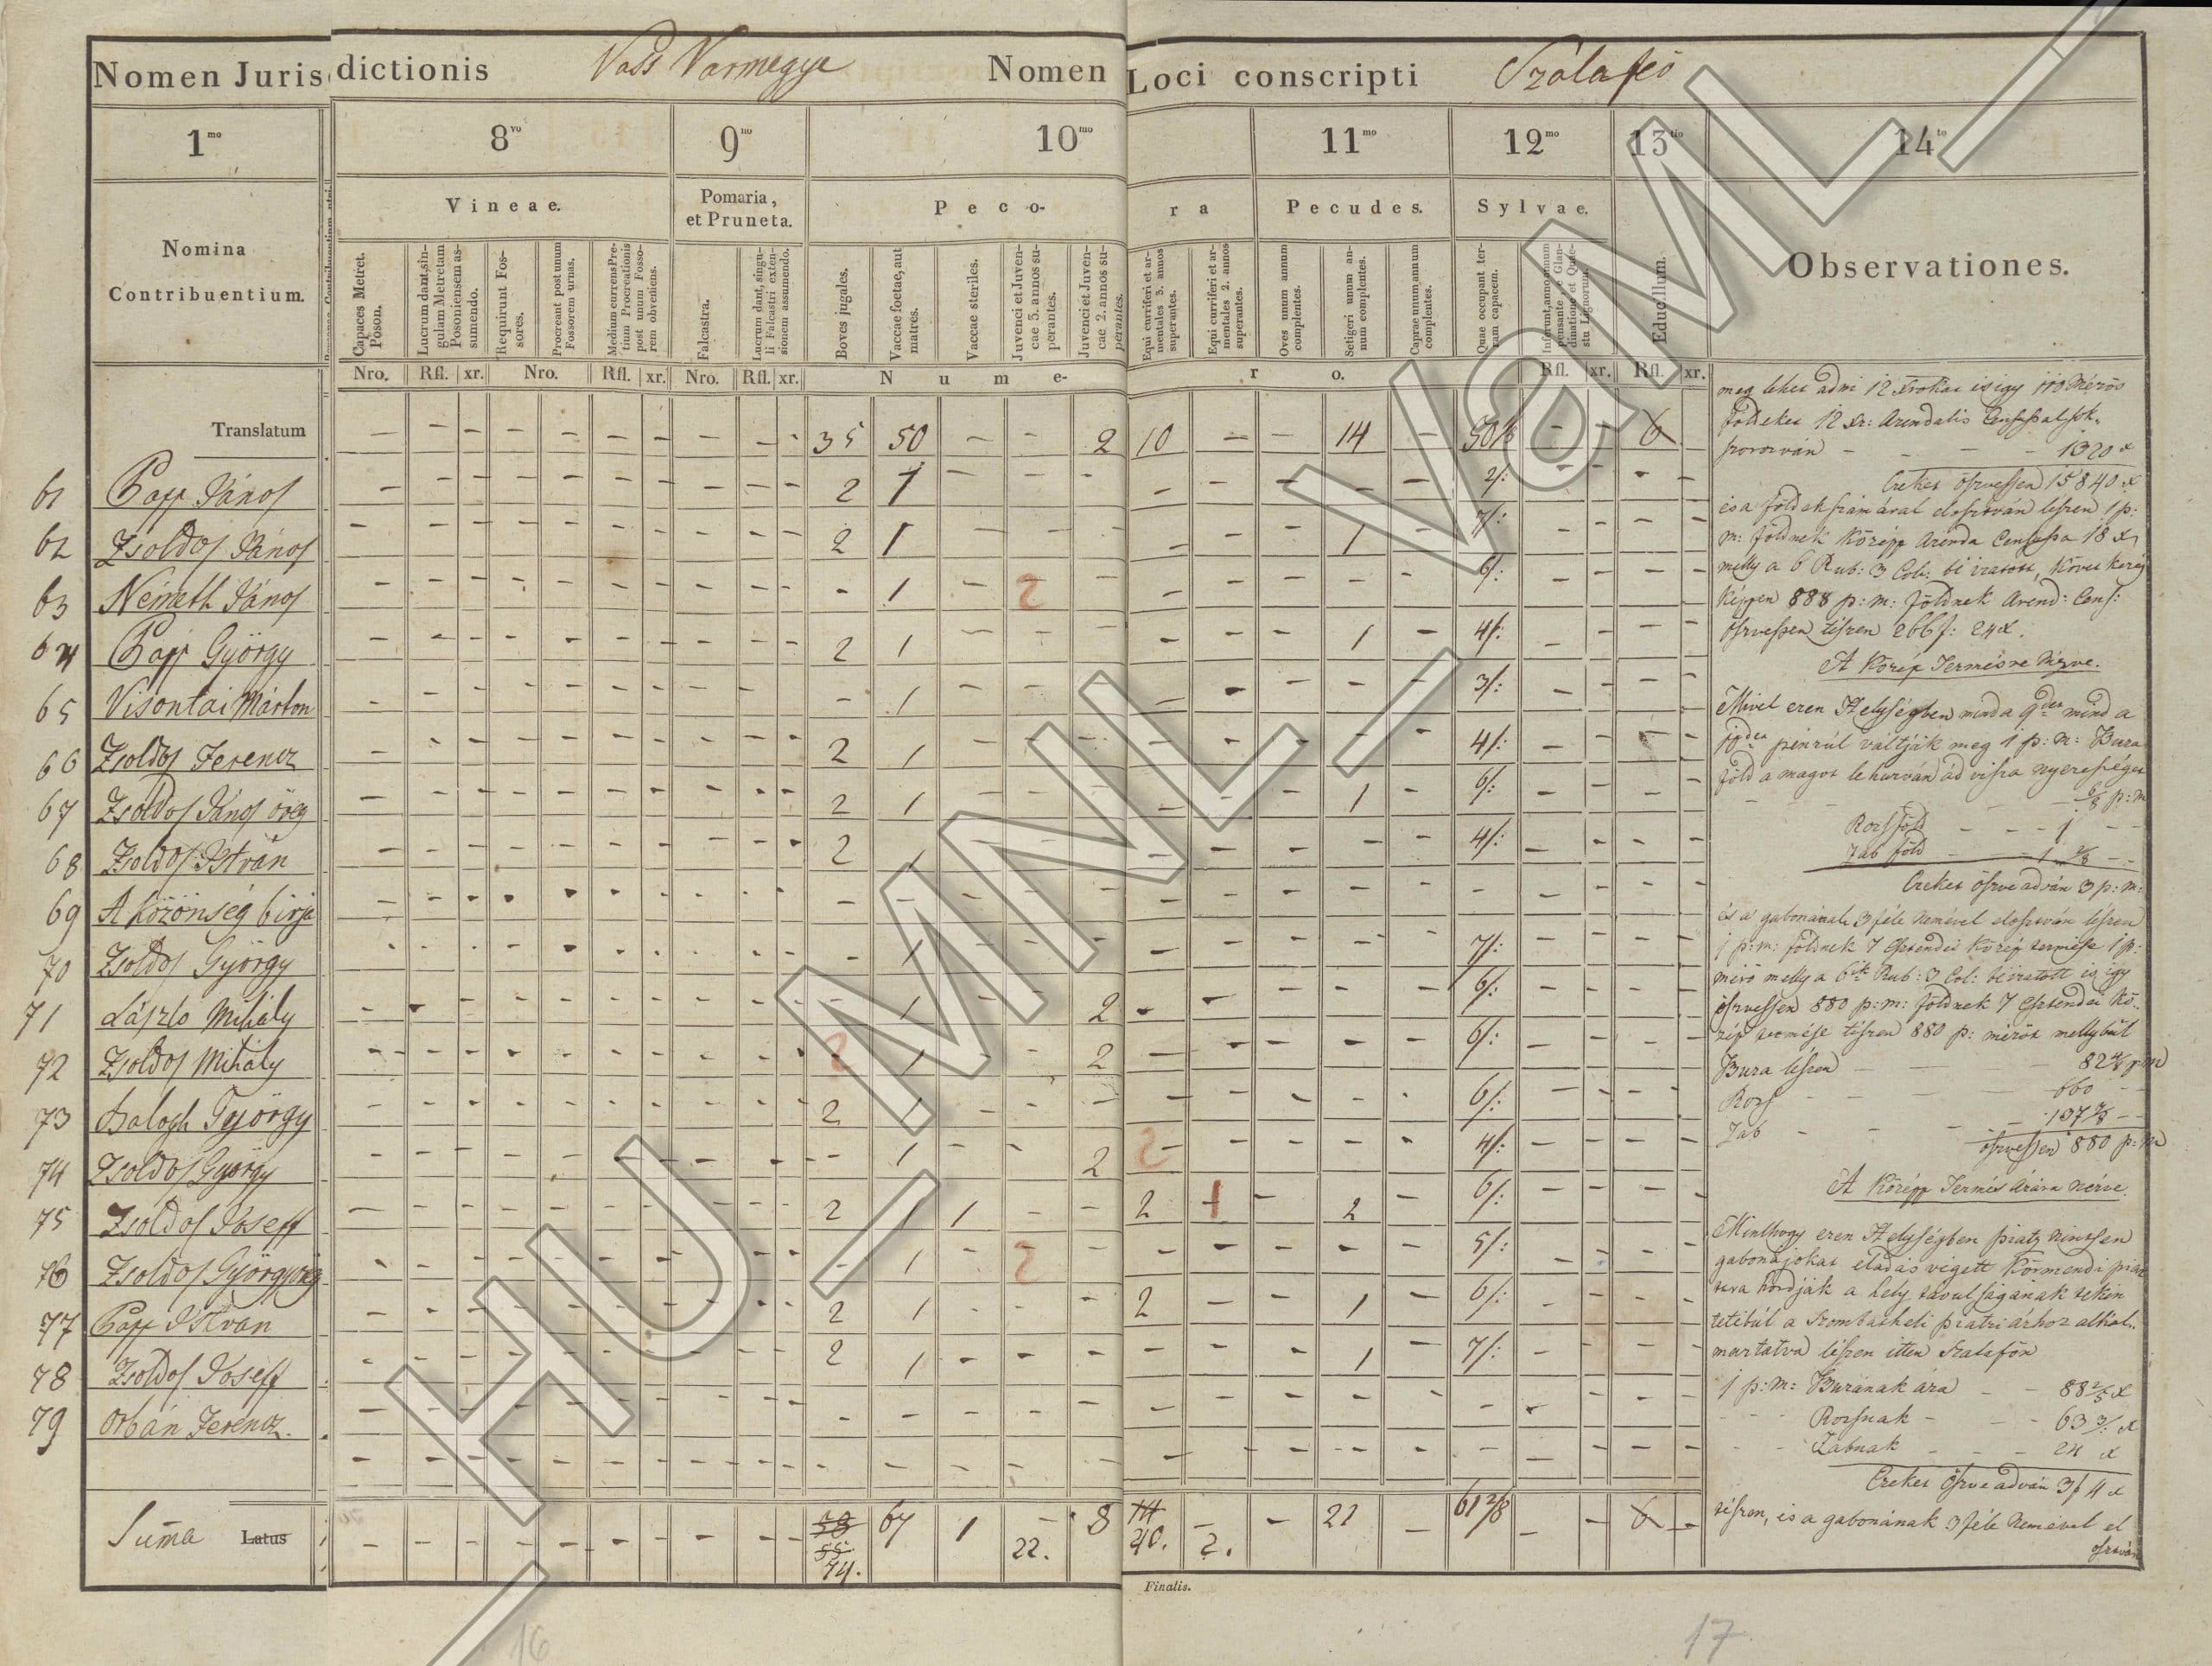 Nomen Jurisdictionis Vass Varmegye Nomen Loci conscripti Szalafeö
1mo 8vo 9no 10mo 11mo 12mo 13tio 14to
Nomina Contribuentium.
Vineae.
Pomaria, et Pruneta.
Peco-
ra
Pecudes.
Sylvae.
Educillum.
Observationes.
Capaces Metret. Poson.
Lucrum dant, singulam Metretam Posoniensem assumendo.
Requirunt Fossores.
Procreant post unum Fossorem urnas.
Medium currens Pretium Procreationis post unum Fossorem obveniens.
Falcastra.
Lucrum dant, singuli Falcastri extensionem assumendo.
Boves jugales.
Vaccae foetae, aut matres.
Vaccae steriles.
Juvenci et Juvencae 3. annos superantes.
Juvenci et Juvencae 2. annos superantes.
Equi curriferi et armentales 3. annos superantes.
Equi curriferi et armentales 2. annos superantes.
Oves unum annum complentes.
Setigeri unum annum complentes.
Caprae unum annum complentes.
Quae occupant terram capacem.
Nro. Rfl. xr. Nro. Rfl. xr. Nro. Rfl. xr. N u m e- r o. Rfl. xr. Rfl. xr.
Translatum - - - - - - - - - - 35 50 - - 2 10 - - 14 - - - 6
61 Papp János - - - - - - - - - - 2 1 - - - - - - - - 2/: - - - -
62 Zsoldos János - - - - - - - - - - 2 1 - - - - - - 1 - 7/: - - - -
63 Németh János - - - - - - - - - - - 1 - 2 - - - - - - 6/: - - - -
64 Papp György - - - - - - - - - - 2 1 - - - - - - 1 - 4/: - - - -
65 Visontai Márton - - - - - - - - - - - 1 - - - - - - - - 3/: - - - -
66 Zsoldos Ferencz - - - - - - - - - - 2 1 - - - - - - - - 4/: - - - -
67 Zsoldos János öreg - - - - - - - - - - 2 1 - - - - - - 1 - 6/: - - - -
68 Zsoldos István - - - - - - - - - - 2 1 - - - - - - - - 4/: - - - -
69 A közönség birja - - - - - - - - - - - - - - - - - - - - - - - - -
70 Zsoldos György - - - - - - - - - - - 1 - - - - - - - - 7/: - - - -
71 László Mihály - - - - - - - - - - - 1 - - 2 - - - - - 6/: - - - -
72 Zsoldos Mihály - - - - - - - - - - 2 1 - - 2 - - - - - 6/: - - - -
73 Balogh György - - - - - - - - - - 2 1 - - - - - - - - 6/: - - - -
74 Zsoldos György - - - - - - - - - - - 1 - - 2 2 - - - - 4/: - - - -
75 Zsoldos Joseff - - - - - - - - - - 2 1 1 - - 2 1 - 2 - 6/: - - - -
76 Zsoldos György öreg - - - - - - - - - - - 1 - 2 - - - - - - 5/: - - - -
77 Papp Istvan - - - - - - - - - - 2 1 - - - 2 - - 1 - 6/: - - - -
78 Zsoldos Joseff - - - - - - - - - - 2 1 - - - - - - 1 - 7/: - - - -
79 Orbán Ferencz. - - - - - - - - - - - - - - - - - - - - - - - - -
Suma Latus - - - - - - - - - - 58 55 74. 67 1 22. 8 14 40. 2. - 21 - 61 2/8 - - 6 -
Finalis.
meg lehet adni 12 és így 110 Mérös
földeket 12 xr: Arendalis
- - - - 1320 x
Ezeket öszvessen 15840 x
és a földek számával eloszván lészen 1 p:
m: földnek közepp Arenda Censusa 18 x,
melly a 6 Rub: 3 Col: bé iratott, követ kezés
képpen 888 p: m: földnek Arend: Cens:
öszvessen tészen 266 f: 24 x.
A Közép Termésre Nézve.
Mivel ezen Helységben mind a 9det mind a
10det pénzül váltják meg 1 p: m: Buza
föld a magot le huzván ád viszsa nyereséget
- - - 6/8 p: m
Rozsföld - - - 1 - -
Zab föld - - - 1 2/8 - -
Ezeket öszve adván 3 p: m:
és a gabonának 3 féle Nemével eloszván lészen
1 p: m: földnek 7 esztendei közép termése 1 p:
mérö melly a 6ik Rub: 3 Col: béiratott és így
öszvessen 880 p: m: földnek 7 esztendei kö-
zép termése tészen 880 p: mérös mellybül
Buza lészen - - - 82 4/8 p: m
Rozs - - - 660 - -
Zab - - - 137 4/8 - -
öszvessen 880 p: m
A Közepp Termés Árára nézve.
Minthogy ezen Helységben piatz nintsen
gabonájokat eladás végett Körmendi piatz
ra hordják a hely távulságának tekin
tetébül a Szombatheli piatzi árhoz alkal-
maztatva lészen itten Szalafön
1 p: m: Buzának ára - - 88 2/5 x
Rozsnak - - - 63 3/: x
Zabnak - - - 24 x
Ezeket Öszve adván 3 f 4 x
tészen, és a gabonának 3 féle Nemével el
oszván
16
17
HU_MNL_VaML_I